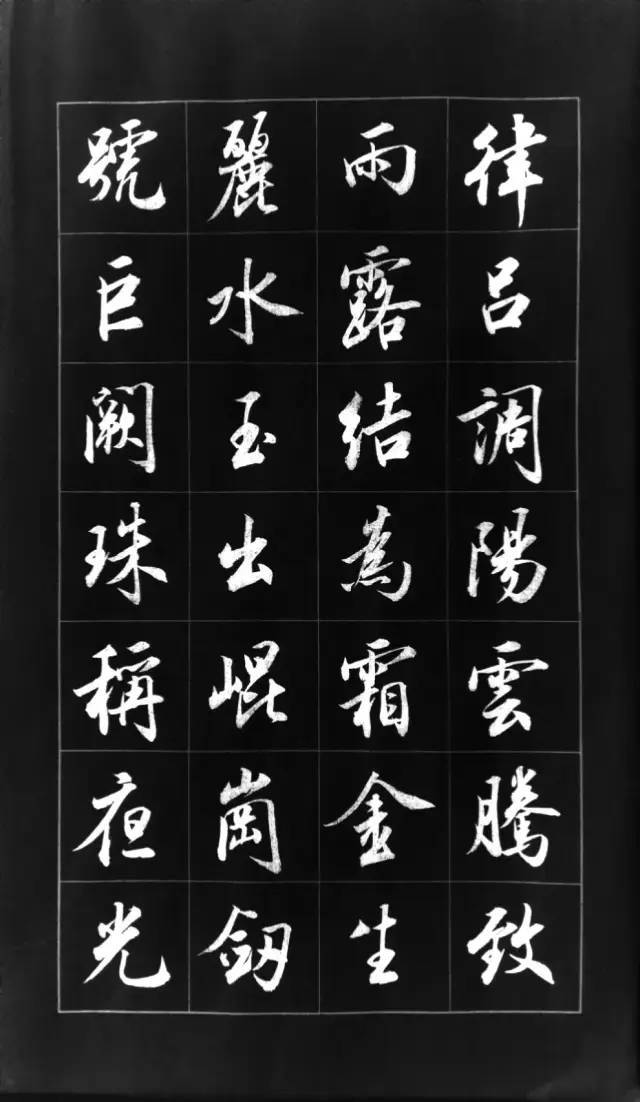 律呂調陽雲騰致
雨露結為霜金生
麗水玉出崐崗劔
號巨闕珠稱夜光